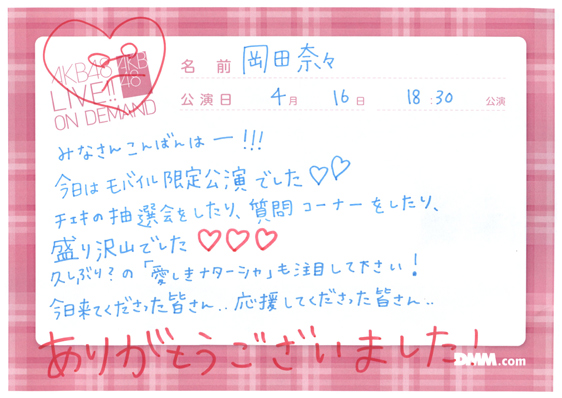 AKB48
LIVE!!
ON DEMAND
AKB
48
名前 岡田奈々
公演日 4月 16日 18:30 公演
みなさんこんばんはー!!!
今日はモバイル限定公演でした♡♡
チェキの抽選会をしたり、質問コーナーをしたり、
盛り沢山でした♡♡♡
久しぶり?の「愛しきナターシャ」も注目して下さい!
今日来てくださった皆さん..応援してくださった皆さん..
ありがとうございました!
DMM.com